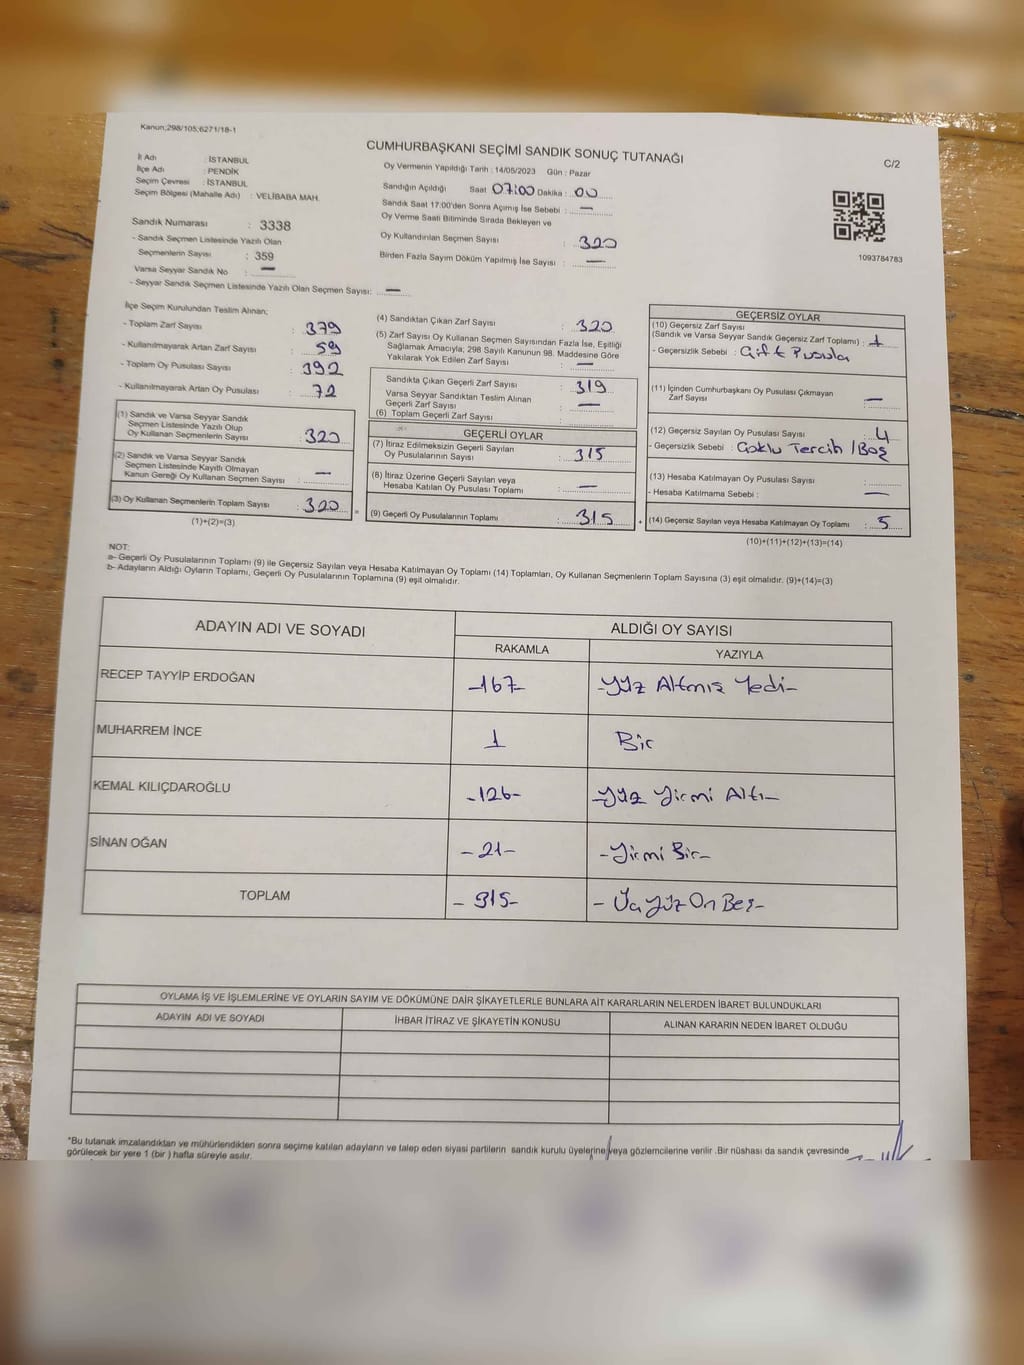 Kanun;298/105;6271/18-1
CUMHURBAŞKANI SEÇİMİ SANDIK SONUÇ TUTANAĞI
C/2
İl Adı : İSTANBUL
İlçe Adı : PENDİK
Seçim Çevresi : İSTANBUL
Seçim Bölgesi (Mahalle Adı) : VELİBABA MAH.
Oy Vermenin Yapıldığı Tarih : 14/05/2023 Gün : Pazar
Sandığın Açıldığı Saat 07:00 Dakika : 00
Sandık Saat 17:00'den Sonra Açılmış İse Sebebi : —
Oy Verme Saati Bitiminde Sırada Bekleyen ve
Oy Kullandırılan Seçmen Sayısı : 320
Birden Fazla Sayım Döküm Yapılmış İse Sayısı : —
1093784783
Sandık Numarası : 3338
- Sandık Seçmen Listesinde Yazılı Olan
Seçmenlerin Sayısı : 359
Varsa Seyyar Sandık No : —
- Seyyar Sandık Seçmen Listesinde Yazılı Olan Seçmen Sayısı: —
İlçe Seçim Kurulundan Teslim Alınan;
- Toplam Zarf Sayısı : 379
- Kullanılmayarak Artan Zarf Sayısı : 59
- Toplam Oy Pusulası Sayısı : 392
- Kullanılmayarak Artan Oy Pusulası : 72
(1) Sandık ve Varsa Seyyar Sandık
Seçmen Listesinde Yazılı Olup
Oy Kullanan Seçmenlerin Sayısı : 320
(2) Sandık ve Varsa Seyyar Sandık
Seçmen Listesinde Kayıtlı Olmayan
Kanun Gereği Oy Kullanan Seçmen Sayısı : —
(3) Oy Kullanan Seçmenlerin Toplam Sayısı : 320
(1)+(2)=(3)
(4) Sandıktan Çıkan Zarf Sayısı : 320
(5) Zarf Sayısı Oy Kullanan Seçmen Sayısından Fazla İse, Eşitliği
Sağlamak Amacıyla, 298 Sayılı Kanunun 98. Maddesine Göre
Yakılarak Yok Edilen Zarf Sayısı : —
Sandıkta Çıkan Geçerli Zarf Sayısı : 319
Varsa Seyyar Sandıktan Teslim Alınan
Geçerli Zarf Sayısı : —
(6) Toplam Geçerli Zarf Sayısı :
GEÇERLİ OYLAR
(7) İtiraz Edilmeksizin Geçerli Sayılan
Oy Pusulalarının Sayısı : 315
(8) İtiraz Üzerine Geçerli Sayılan veya
Hesaba Katılan Oy Pusulası Toplamı : —
= (9) Geçerli Oy Pusulalarının Toplamı : 315
GEÇERSİZ OYLAR
(10) Geçersiz Zarf Sayısı
(Sandık ve Varsa Seyyar Sandık Geçersiz Zarf Toplamı) : 1
- Geçersizlik Sebebi : Çift Pusula
(11) İçinden Cumhurbaşkanı Oy Pusulası Çıkmayan
Zarf Sayısı : —
(12) Geçersiz Sayılan Oy Pusulası Sayısı : 4
- Geçersizlik Sebebi : Çoklu Tercih / Boş
(13) Hesaba Katılmayan Oy Pusulası Sayısı :
- Hesaba Katılmama Sebebi : —
+ (14) Geçersiz Sayılan veya Hesaba Katılmayan Oy Toplamı : 5
(10)+(11)+(12)+(13)=(14)
NOT:
a- Geçerli Oy Pusulalarının Toplamı (9) ile Geçersiz Sayılan veya Hesaba Katılmayan Oy Toplamı (14) Toplamları, Oy Kullanan Seçmenlerin Toplam Sayısına (3) eşit olmalıdır. (9)+(14)=(3)
b- Adayların Aldığı Oyların Toplamı, Geçerli Oy Pusulalarının Toplamına (9) eşit olmalıdır.
ADAYIN ADI VE SOYADI ALDIĞI OY SAYISI
RAKAMLA YAZIYLA
RECEP TAYYİP ERDOĞAN -167- -Yüz Altmış Yedi-
MUHARREM İNCE 1 Bir
KEMAL KILIÇDAROĞLU -126- -Yüz Yirmi Altı-
SİNAN OĞAN -21- -Yirmi Bir-
TOPLAM - 315- - Üç Yüz On Beş-
OYLAMA İŞ VE İŞLEMLERİNE VE OYLARIN SAYIM VE DÖKÜMÜNE DAİR ŞİKAYETLERLE BUNLARA AİT KARARLARIN NELERDEN İBARET BULUNDUKLARI
ADAYIN ADI VE SOYADI İHBAR İTİRAZ VE ŞİKAYETİN KONUSU ALINAN KARARIN NEDEN İBARET OLDUĞU
*Bu tutanak imzalandıktan ve mühürlendikten sonra seçime katılan adayların ve talep eden siyasi partilerin sandık kurulu üyelerine veya gözlemcilerine verilir .Bir nüshası da sandık çevresinde
görülecek bir yere 1 (bir ) hafta süreyle asılır.